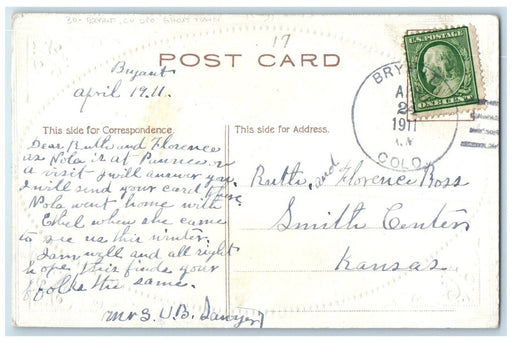 17
POST CARD
U.S. POSTAGE
ONE CENT
BRY
1911
COLO.
Bryant
april 19.11.
This side for Correspondence
Dear Ruth and Florence
as Nola is at on
a visit I will answer you
I will send your card there.
Nola went home with
Ethel when she came
to see us this winter.
I am well and all right
hope this finds your
folks the same.
Mrs. U.B. Sawyer
This side for Address.
Ruth, and Florence Ross
Smith Center
Kansas